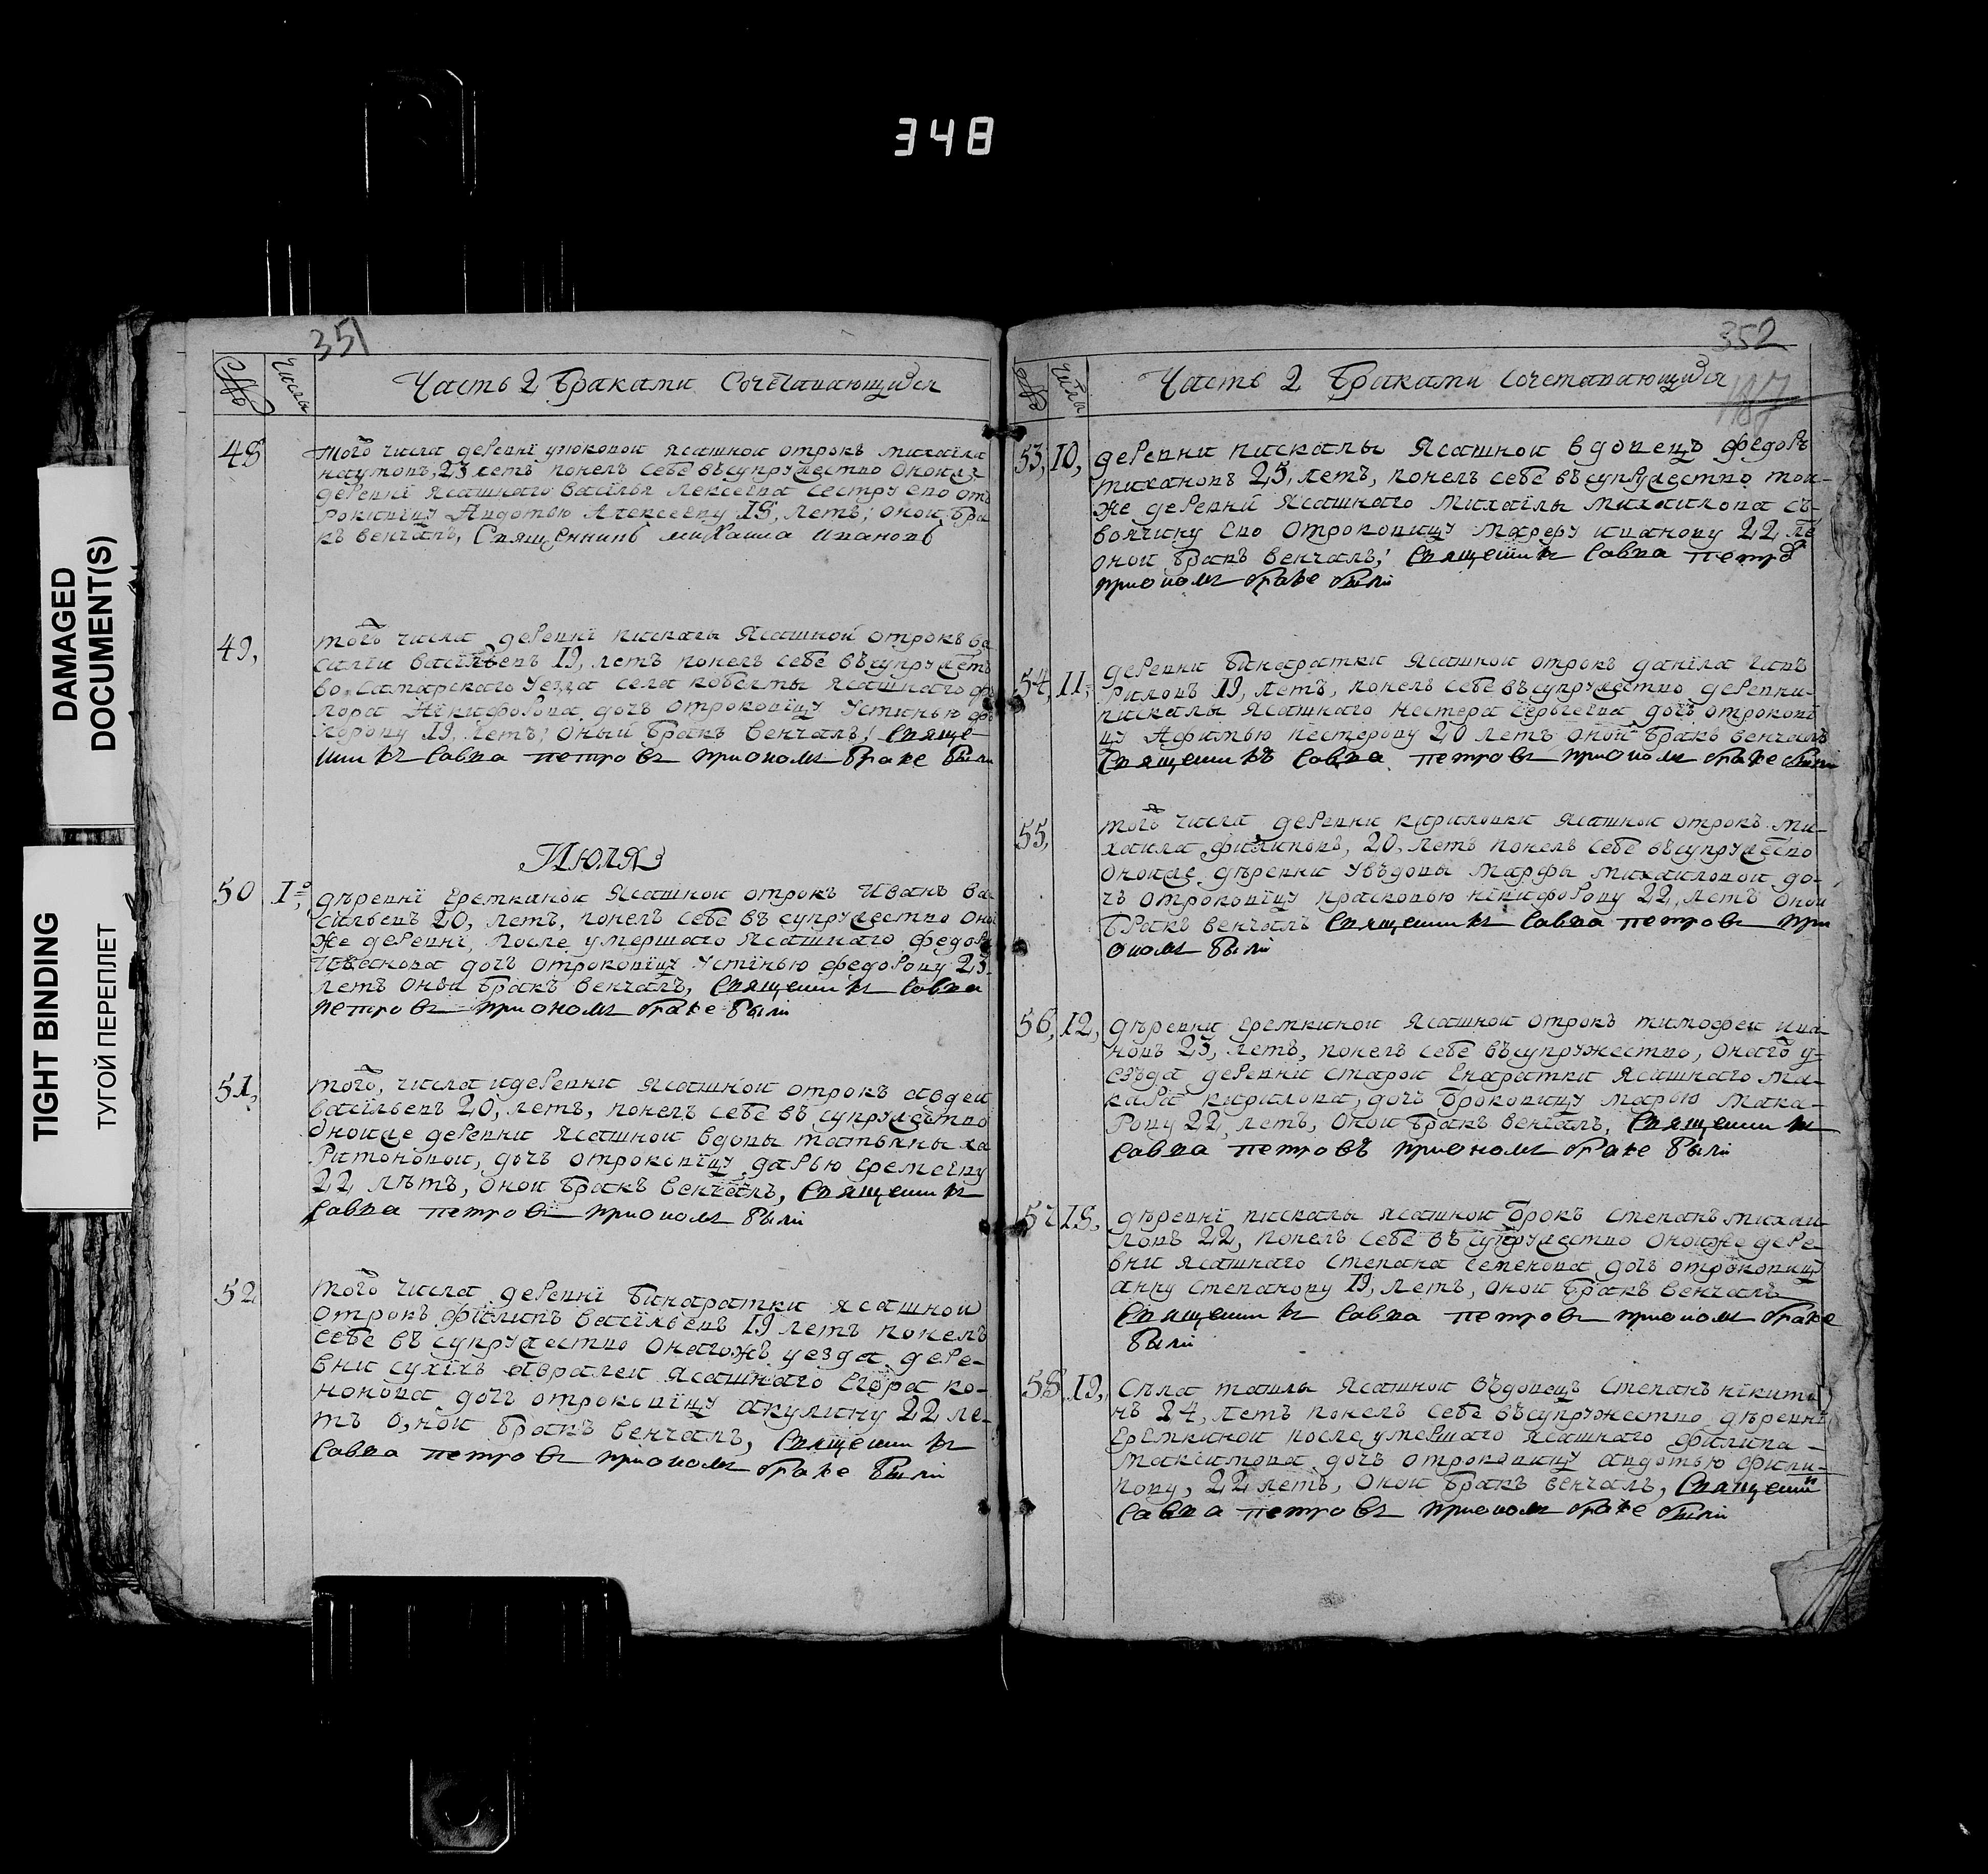 348
DAMAGED
DOCUMENT(S)
TIGHT BINDING
ТУГОЙ ПЕРЕПЛЕТ
351
Числы
Часть 2 Браками Сочетавающихся
48 того числа деревнї уюковой ясашной отрокъ михаила
наумовъ, 23 летъ понелъ себе въсупружество оной же
деревнї ясашнаго василья лексеева сестру ево от
роковицу Авдотью Алексееву 18, летъ; оной бра
къ венчалъ, Священникъ михаила ивановъ
49, того числа деревнї пискалы ясашной отрокъ ва
силии васїльевъ 19, летъ понелъ себе въсупружест
во самарского уезда села кобелмы ясашнаго
Никифорова дочъ отроковїцу устинью
19, летъ; оный бракъ венчалъ; Свяще
нникъ Савва петровъ приономъ браке были
Июля
50 1го деревнї Еремкиной ясашной отрокъ Иванъ ва
сильевъ 20, летъ, понелъ себе въ супружество оной
же деревнї, после умершаго ясашнаго федора
дочъ отроковїцу устїнью федорову 23
летъ оной бракъ венчалъ, Священникъ Савва
петровъ приономъ браке были
51, того, числа идеревни ясашной отрокъ авдей
васїльевъ 20, летъ, понелъ себе въ супружество
оной же деревни ясашной вдовы татьяны ха
ритоновой, дочъ отроковїцу дарью еремееву
22 лѣтъ, оной бракъ венчалъ, Священникъ
Савва петровъ приономъ были
52 того числа деревнї бинаратки ясашной
отрокъ филипъ васїльевъ 19 летъ понелъ
себе въ супружество оногожъ уезда дере-
вни сухїхъ авралей ясашнаго Егора ко-
нонова дочъ отроковїцу акулину 22 ле-
тъ о,ной бракъ венчалъ, Священникъ
Савва петровъ приономъ браке были
352
Числа
Часть 2 Браками сочетавающихся
53, 10, деревни пискалы ясашной вдовецъ федоръ
тихановъ 25, летъ, понелъ себе въсупружество той-
же деревни ясашнаго михайлы михаилова съ-
воячину ево отроковицу марфу иванову 22 ле
оной бракъ венчалъ; Священникъ Савва петро
приономъ браке были
54, 11, деревни бинаратки ясашной отрокъ данїла гав
риловъ 19, летъ, понелъ себе въсупружество деревни
пискалы ясашнаго нестера сергеева дочъ отрокови
цу Афимью нестерову 20 летъ оной бракъ венчалъ
Священникъ Савва петровъ приономъ браке были
55, того числа деревни кириловки ясашной отрокъ ми-
хаила филиповъ, 20, летъ понелъ себе въсупружество
оной же дѣревни увъдовы марфы михаиловой до-
чъ отроковїцу прасковью никифорову 22, летъ оной
бракъ венчалъ Священникъ Савва петровъ при
ономъ были
56, 12, дѣревни еремкиной ясашной отрокъ тимофей ива-
новъ 23, летъ, понелъ себе въсупружество, оного у-
езъда деревни старой бнаратки ясашнаго ма-
кара кирилова, дочъ броковицу марью мака-
рову 22, летъ, оной бракъ венчалъ, Священникъ
Савва петровъ приономъ браке были
57 18, дѣревнї пискалы ясашной отрокъ степанъ михаи
ловъ 22, понелъ себе въ супружество онойже дере-
вни ясашнаго степана семенова дочъ отроковицу
анну степанову 19, летъ, оной бракъ венчалъ
Священникъ Савва петровъ приономъ браке
были
58 19, Сѣла ташлы ясашной въдовецъ степанъ никити
нъ 24, летъ понелъ себе въсупружество дѣревни
еремкиной после умершаго ясашнаго филипа
максимова дочъ отроковицу авдотью фили-
пову, 22 летъ, оной бракъ венчалъ, Священни
Савва петровъ приономъ браке были